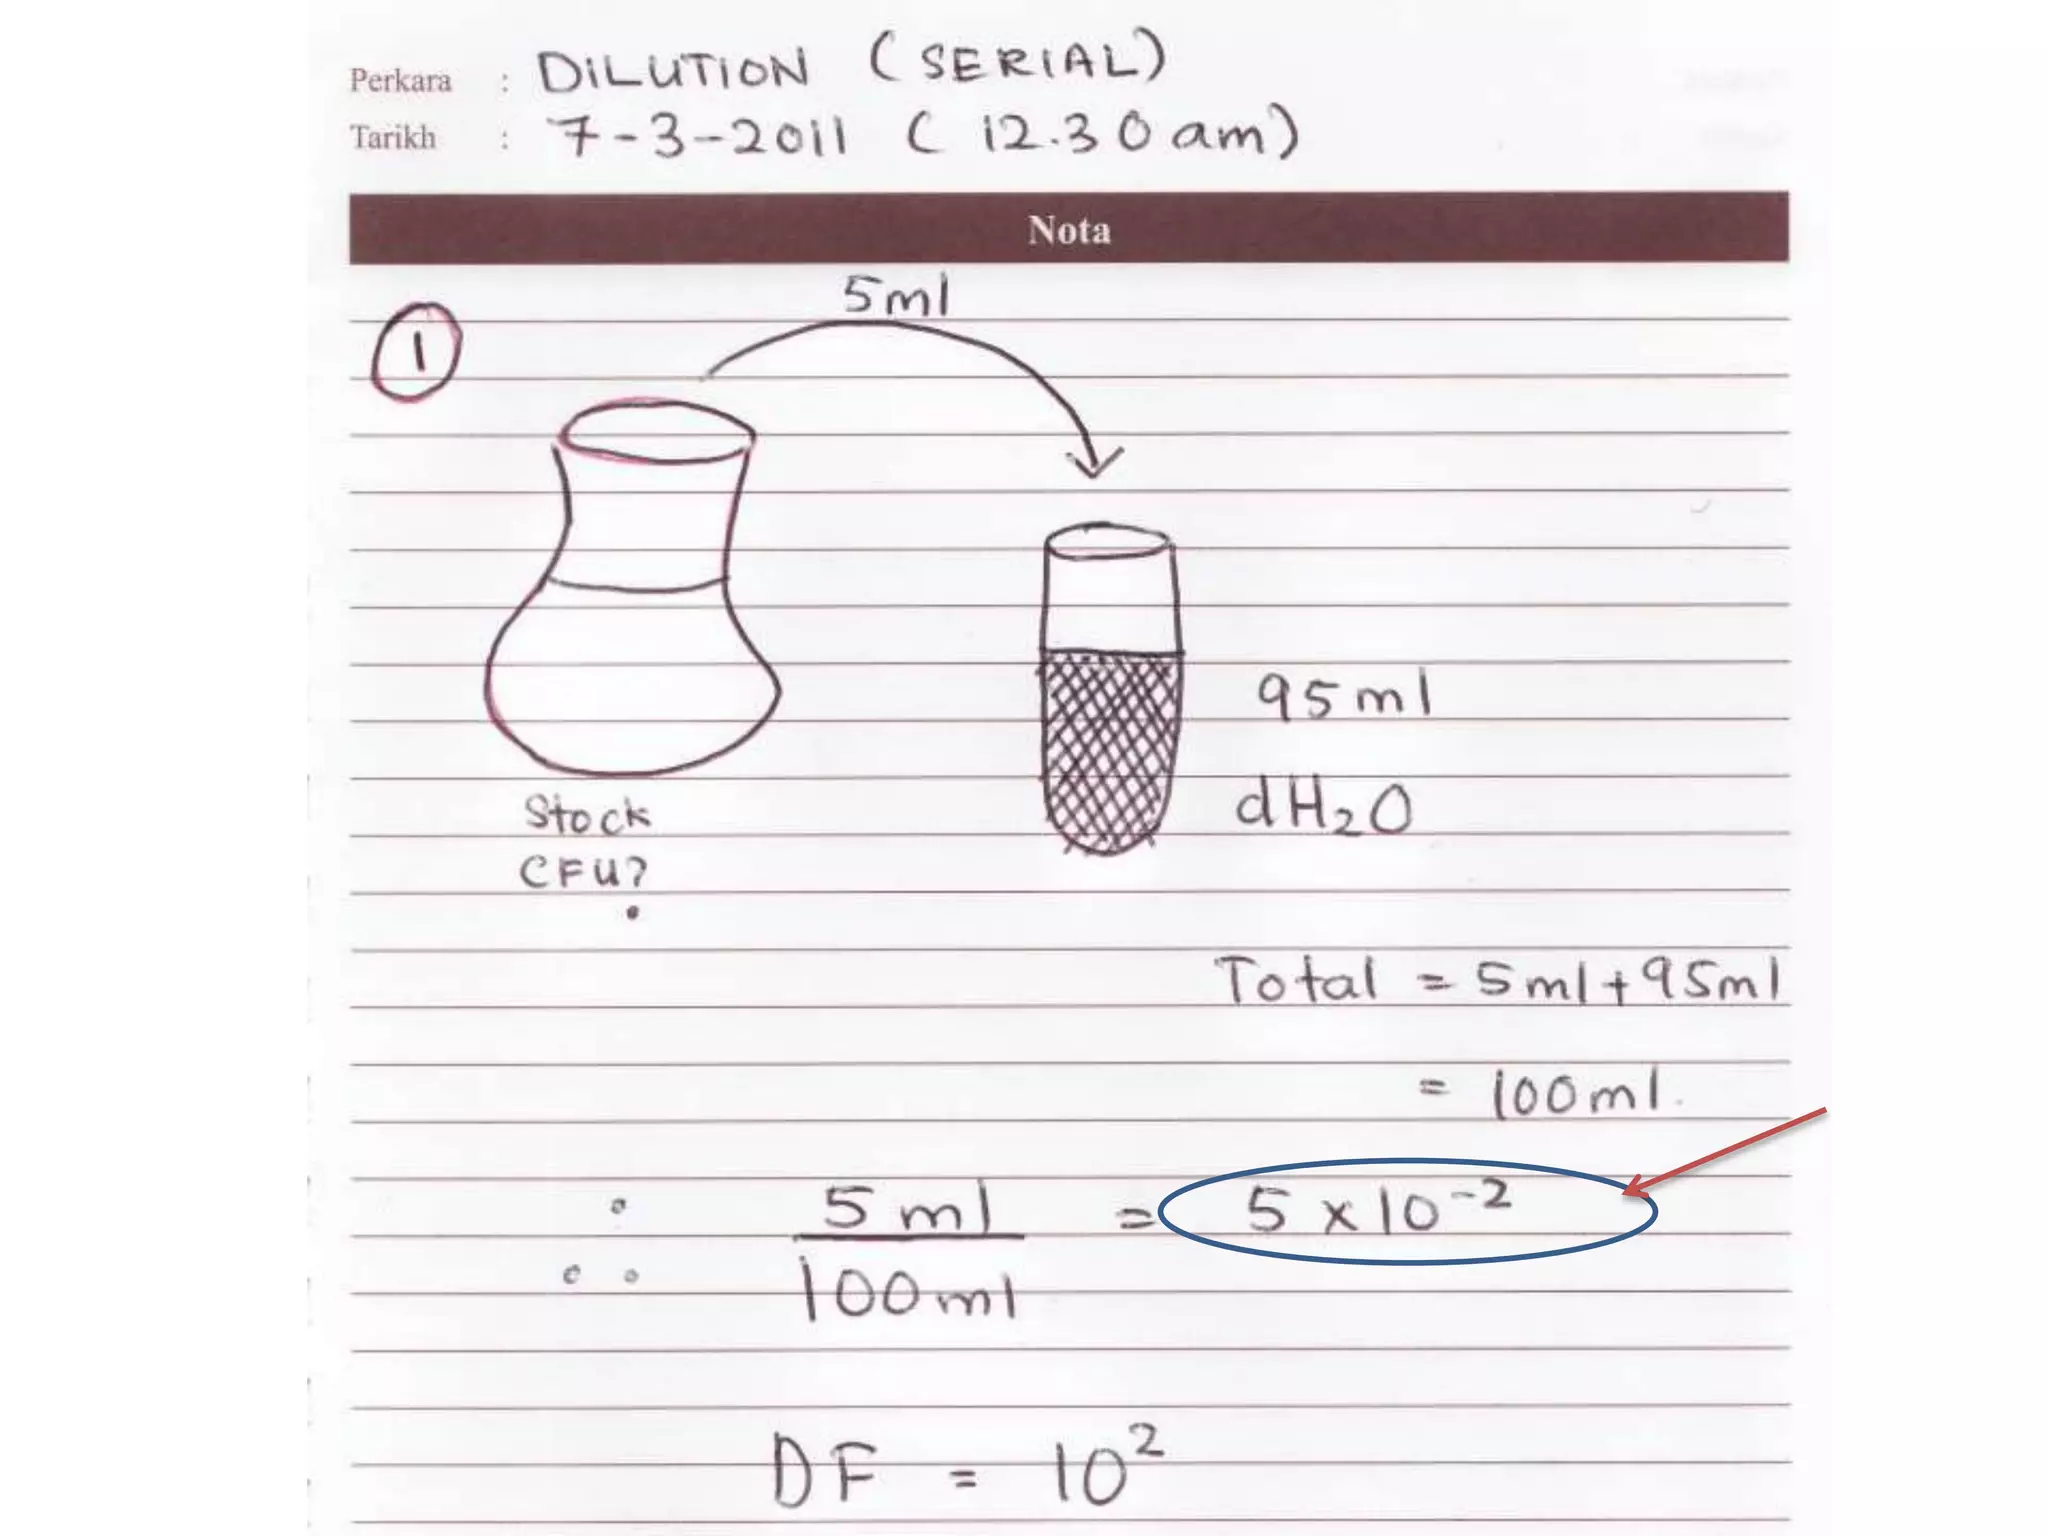 Perkara : DILUTION (SERIAL)
Tarikh : 7-3-2011 (12.30 am)
Nota
1
5ml
95ml
dH₂O
Stock
CFU?
Total = 5ml+95ml
= 100ml.
∴ 5ml/100ml = 5 x 10⁻²
DF = 10²